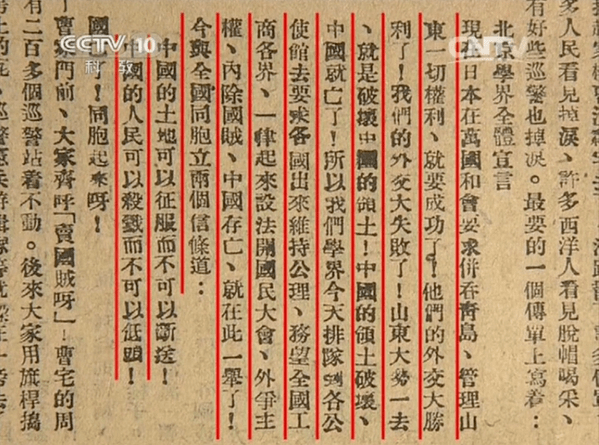 CCTV 10
科教
CNTV
多人民看見掉淚、許多西洋人看見脫帽喝采、
有好些巡警也掉淚。最要的一個傳單上寫着：
北京學界全體宣言
現在日本在萬國和會要求併吞青島、管理山
東一切權利、就要成功了！他們的外交大勝
利了！我們的外交大失敗了！山東大勢一去
、就是破壞中國的領土！中國的領土破壞、
中國就亡了！所以我們學界今天排隊到各公
使館去要求各國出來維持公理、務望全國工
商各界、一律起來設法開國民大會、外爭主
權、內除國賊、中國存亡、就在此一舉了！
今與全國同胞立兩個信條道：
中國的土地可以征服而不可以斷送！
中國的人民可以殺戮而不可以低頭！
國 ！同胞起來呀！
曹家門前、大家齊呼「賣國賊呀」！曹宅的周
有二百多個巡警站着不動。後來大家用旗桿搗